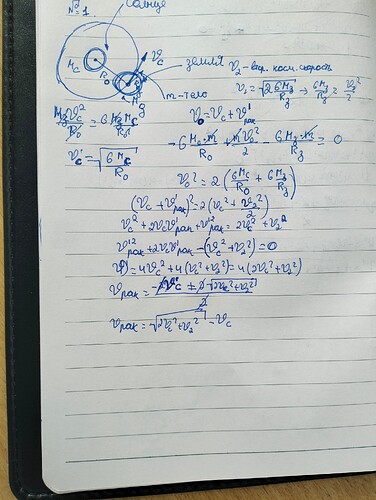 №1
Солнце
M_c
R_0
v_c
земля
m-тело
M_з
v_2 - втор. косм. скорость
v_2 = √(2GM_з/R_з) → GM_з/R_з = v_2²/2
M_з v_c²/R_0 = G M_з M_c/R_0²
v_0 = v_c + v'_рак
v_c = √(GM_c/R_0)
- G M_c m/R_0 + m v_0²/2 - G M_з m/R_з = 0
v_0² = 2 (GM_c/R_0 + GM_з/R_з)
(v_c + v'_рак)² = 2(v_c² + v_2²/2)
v_c² + 2v_c v'_рак + v'²_рак = 2v_c² + v_2²
v'²_рак + 2v_c v'_рак - (v_c² + v_2²) = 0
D = 4v_c² + 4(v_c² + v_2²) = 4(2v_c² + v_2²)
v_рак = (-2v_c ± 2√(2v_c² + v_2²))/2
v_рак = √(2v_c² + v_2²) - v_c